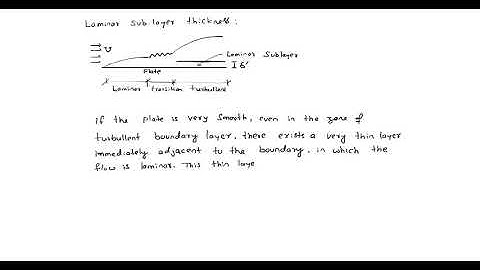 Laminar sub layer thickness:
U
Laminar Sublayer
δ'
Plate
Laminar transition turbullent
If the plate is very smooth, even in the zone of
turbullent boundary layer, there exists a very thin layer
immediately adjacent to the boundary, in which the
flow is laminar. This thin laye